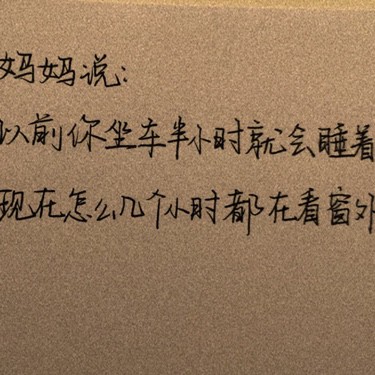 妈妈说:
以前你坐车半小时就会睡着
现在怎么几个小时都在看窗外